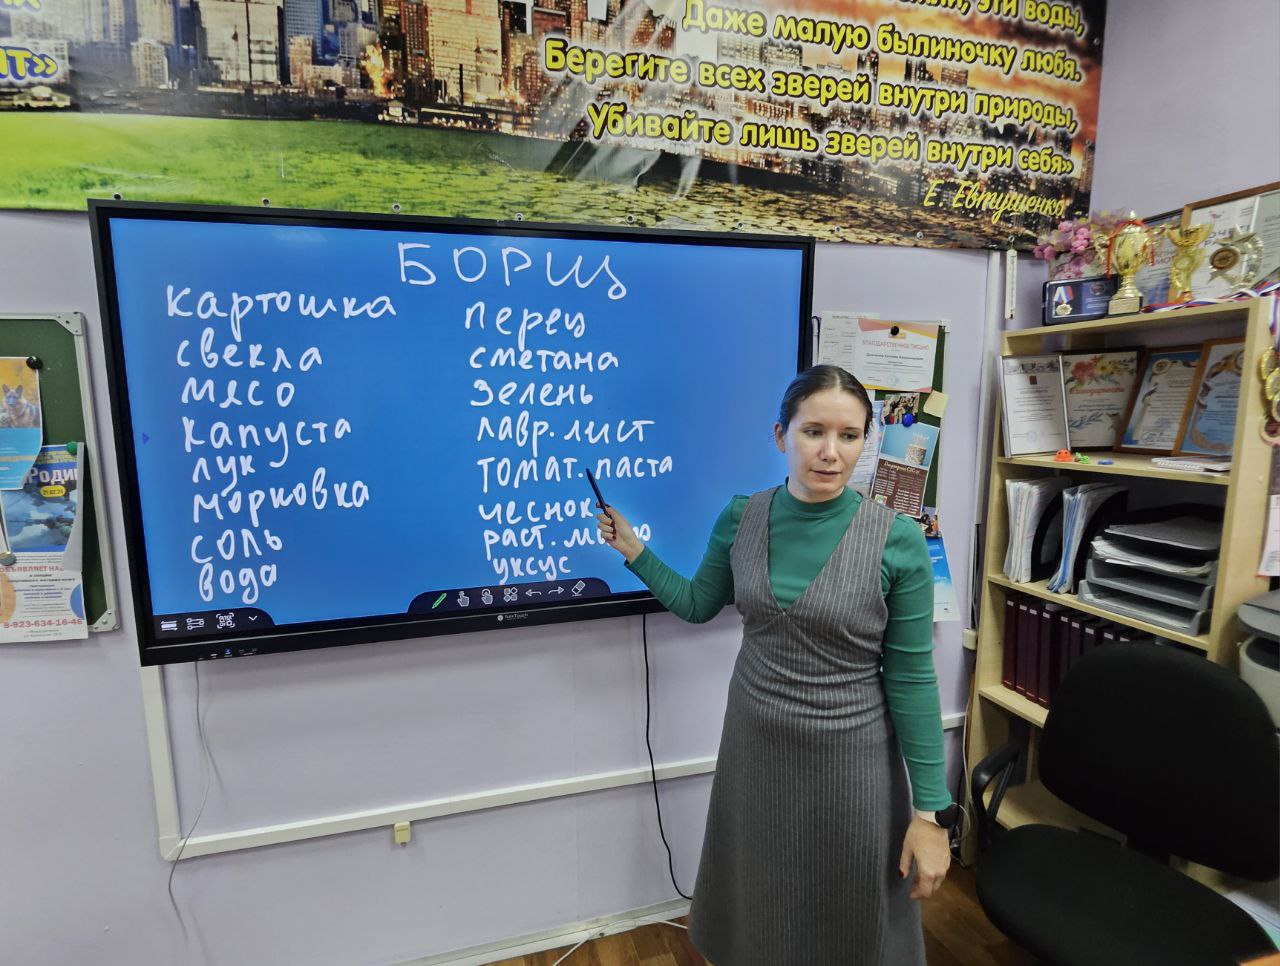 эти воды,
Даже малую былиночку любя.
Берегите всех зверей внутри природы,
Убивайте лишь зверей внутри себя»
Е. Евтушенко
БОРЩ
картошка
свекла
мясо
капуста
лук
морковка
соль
вода
перец
сметана
зелень
лавр. лист
томат. паста
чеснок
раст.
уксус
NexTouch
БЛАГОДАРСТВЕННОЕ ПИСЬМО
8-923-634-16-46